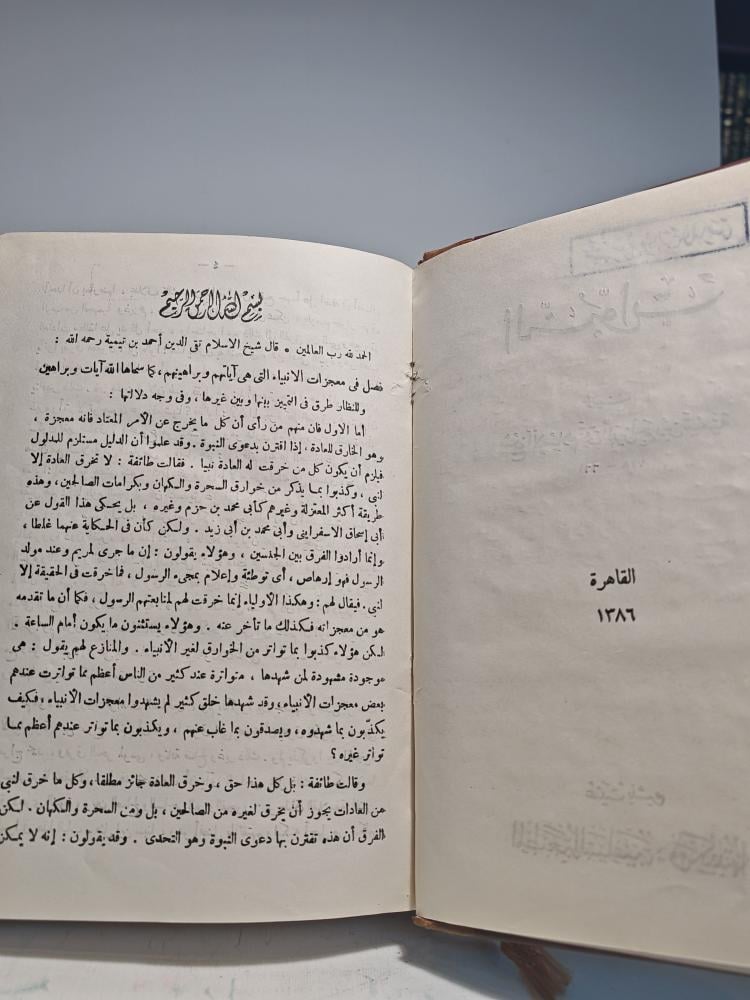 القاهرة
١٣٨٦
— ٤ —
بسم الله الرحمن الرحيم
الحمد لله رب العالمين * قال شيخ الاسلام تقى الدين أحمد بن تيمية رحمه الله :
فصل فى معجزات الانبياء التى هى آياتهم وبراهينهم ، كما سماها الله آيات وبراهين
وللنظار طرق فى التمييز بينها وبين غيرها ، وفى وجه دلالتها :
أما الاول فان منهم من رأى أن كل ما يخرج عن الأمر المعتاد فانه معجزة ،
وهو الخارق للعادة ، إذا اقترن بدعوى النبوة . وقد علموا أن الدليل مستلزم للمدلول
فيلزم أن يكون كل من خرقت له العادة نبيا . فقالت طائفة : لا تخرق العادة إلا
لنبى ، وكذبوا بما يذكر من خوارق السحرة والكهان وبكرامات الصالحين ، وهذه
طريقة أكثر المعتزلة وغيرهم كأبى محمد بن حزم وغيره ، بل يحكى هذا القول عن
أبى إسحاق الاسفراينى وأبى محمد بن أبى زيد . ولكن كأن فى الحكاية عنهما غلطا ،
وإنما أرادوا الفرق بين الجنسين . وهؤلاء يقولون : إن ما جرى لمريم وعند مولد
الرسول فهو إرهاص ، أى توطئة وإعلام بمجىء الرسول ، فما خرقت فى الحقيقة إلا
لنبى . فيقال لهم : وهكذا الأولياء إنما خرقت لهم لمتابعتهم الرسول ، فكما أن ما تقدمه
هو من معجزاته فكذلك ما تأخر عنه . وهؤلاء يستثنون ما يكون أمام الساعة .
لكن هؤلاء كذبوا بما تواتر من الخوارق لغير الأنبياء . والمنازع لهم يقول : هى
موجودة مشهودة لمن شهدها ، متواترة عند كثير من الناس أعظم مما تواترت عندهم
بعض معجزات الأنبياء ، وقد شهدها خلق كثير لم يشهدوا معجزات الأنبياء ، فكيف
يكذّبون بما شهدوه ، ويصدقون بما غاب عنهم ، ويكذبون بما تواتر عندهم أعظم مما
تواتر غيره ؟
وقالت طائفة : بل كل هذا حق ، وخرق العادة جائز مطلقا ، وكل ما خرق لنبى
من العادات يجوز أن يخرق لغيره من الصالحين ، بل ومن السحرة والكهان . لكن
الفرق أن هذه تقترن بها دعوى النبوة وهو التحدى . وقد يقولون : إنه لا يمكن